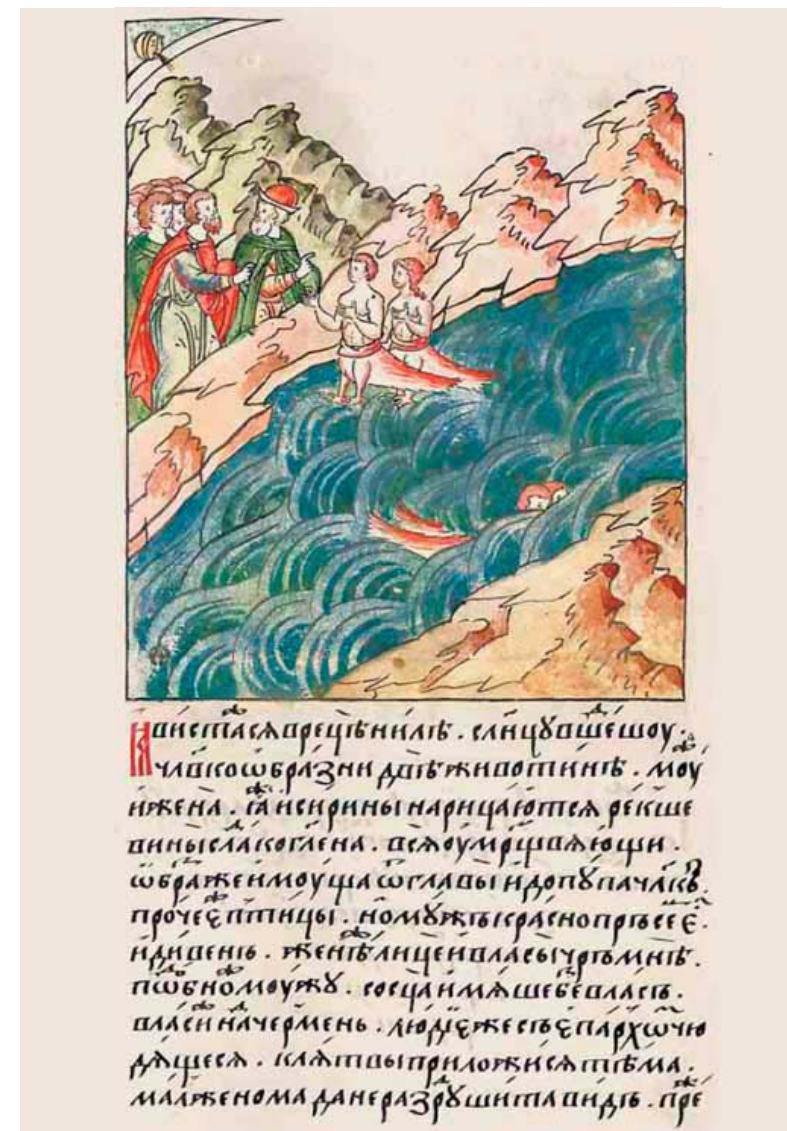 ꙗвистасѧ врецѣ нилѣ . слн҃цꙋ вшешоу .
чл҃вкоѡбразни двѣ животинѣ . моу
и жена . ꙗ и сирины нарицаютсѧ рекше
винысла коглена . всѧ оумрщвѧющи .
ѡбраже имоуща ѿ главы и до пупа чл҃къ .
прочеє птицы . но мужъ краснопръсеє .
и дивенъ . женѣ лице и власы чръмнѣ .
пѡбно моужу . сосца имѧше беꙁвласъ .
власи начермень . людє же съ єпархѡ чю
дѧщесѧ . клѧтвы приложисѧ тѣма .
малженома да не разрꙋшита видъ . пре